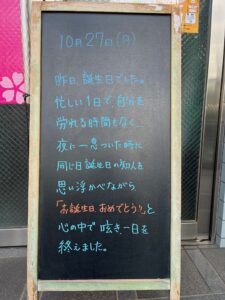 10月27日(月)
昨日、誕生日でした。
忙しい1日で、自分を
労れる時間もなく…
夜に一息ついた時に
同じ日誕生日の知人を
思い浮かべながら
「お誕生日、おめでとう♪」と
心の中で呟き一日を
終えました。